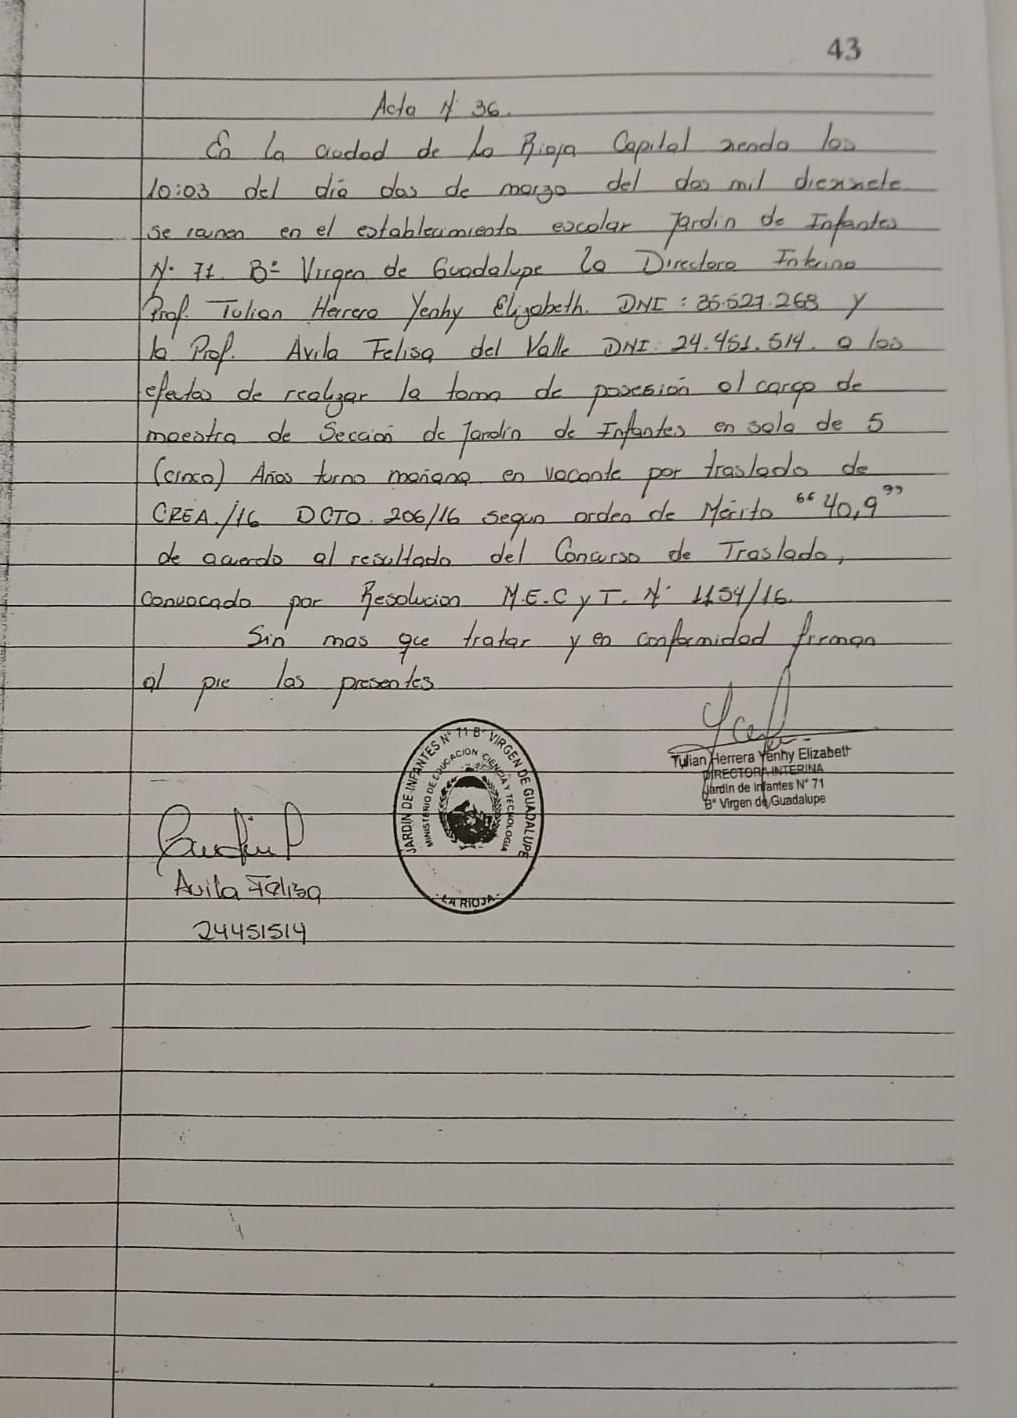 43
Acta N° 36.
En la ciudad de La Rioja Capital siendo las
10:03 del día dos de marzo del dos mil diecisiete
se reunen en el establecimiento escolar Jardin de Infantes
N° 71 B° Virgen de Guadalupe la Directora Interina
Prof. Tulian Herrera Yenhy Elizabeth. DNI: 35.527.268 y
la Prof. Avila Felisa del Valle DNI: 24.451.514. a los
efectos de realizar la toma de posesión al cargo de
maestra de Sección de Jardín de Infantes en sala de 5
(cinco) Años turno mañana en vacante por traslado de
CREA./16 DCTO. 206/16 segun orden de Mérito “40,9”
de acuerdo al resultado del Concurso de Traslado,
convocado por Resolucion M.E.C y T. N° 1154/16.
Sin mas que tratar y en conformidad firman
al pie las presentes
Tulian Herrera Yenhy Elizabeth
DIRECTORA INTERINA
Jardin de Infantes N° 71
B° Virgen de Guadalupe
JARDIN DE INFANTES N° 71 B° VIRGEN DE GUADALUPE
MINISTERIO DE EDUCACION CIENCIA Y TECNOLOGIA
- LA RIOJA -
Avila Felisa
24451514